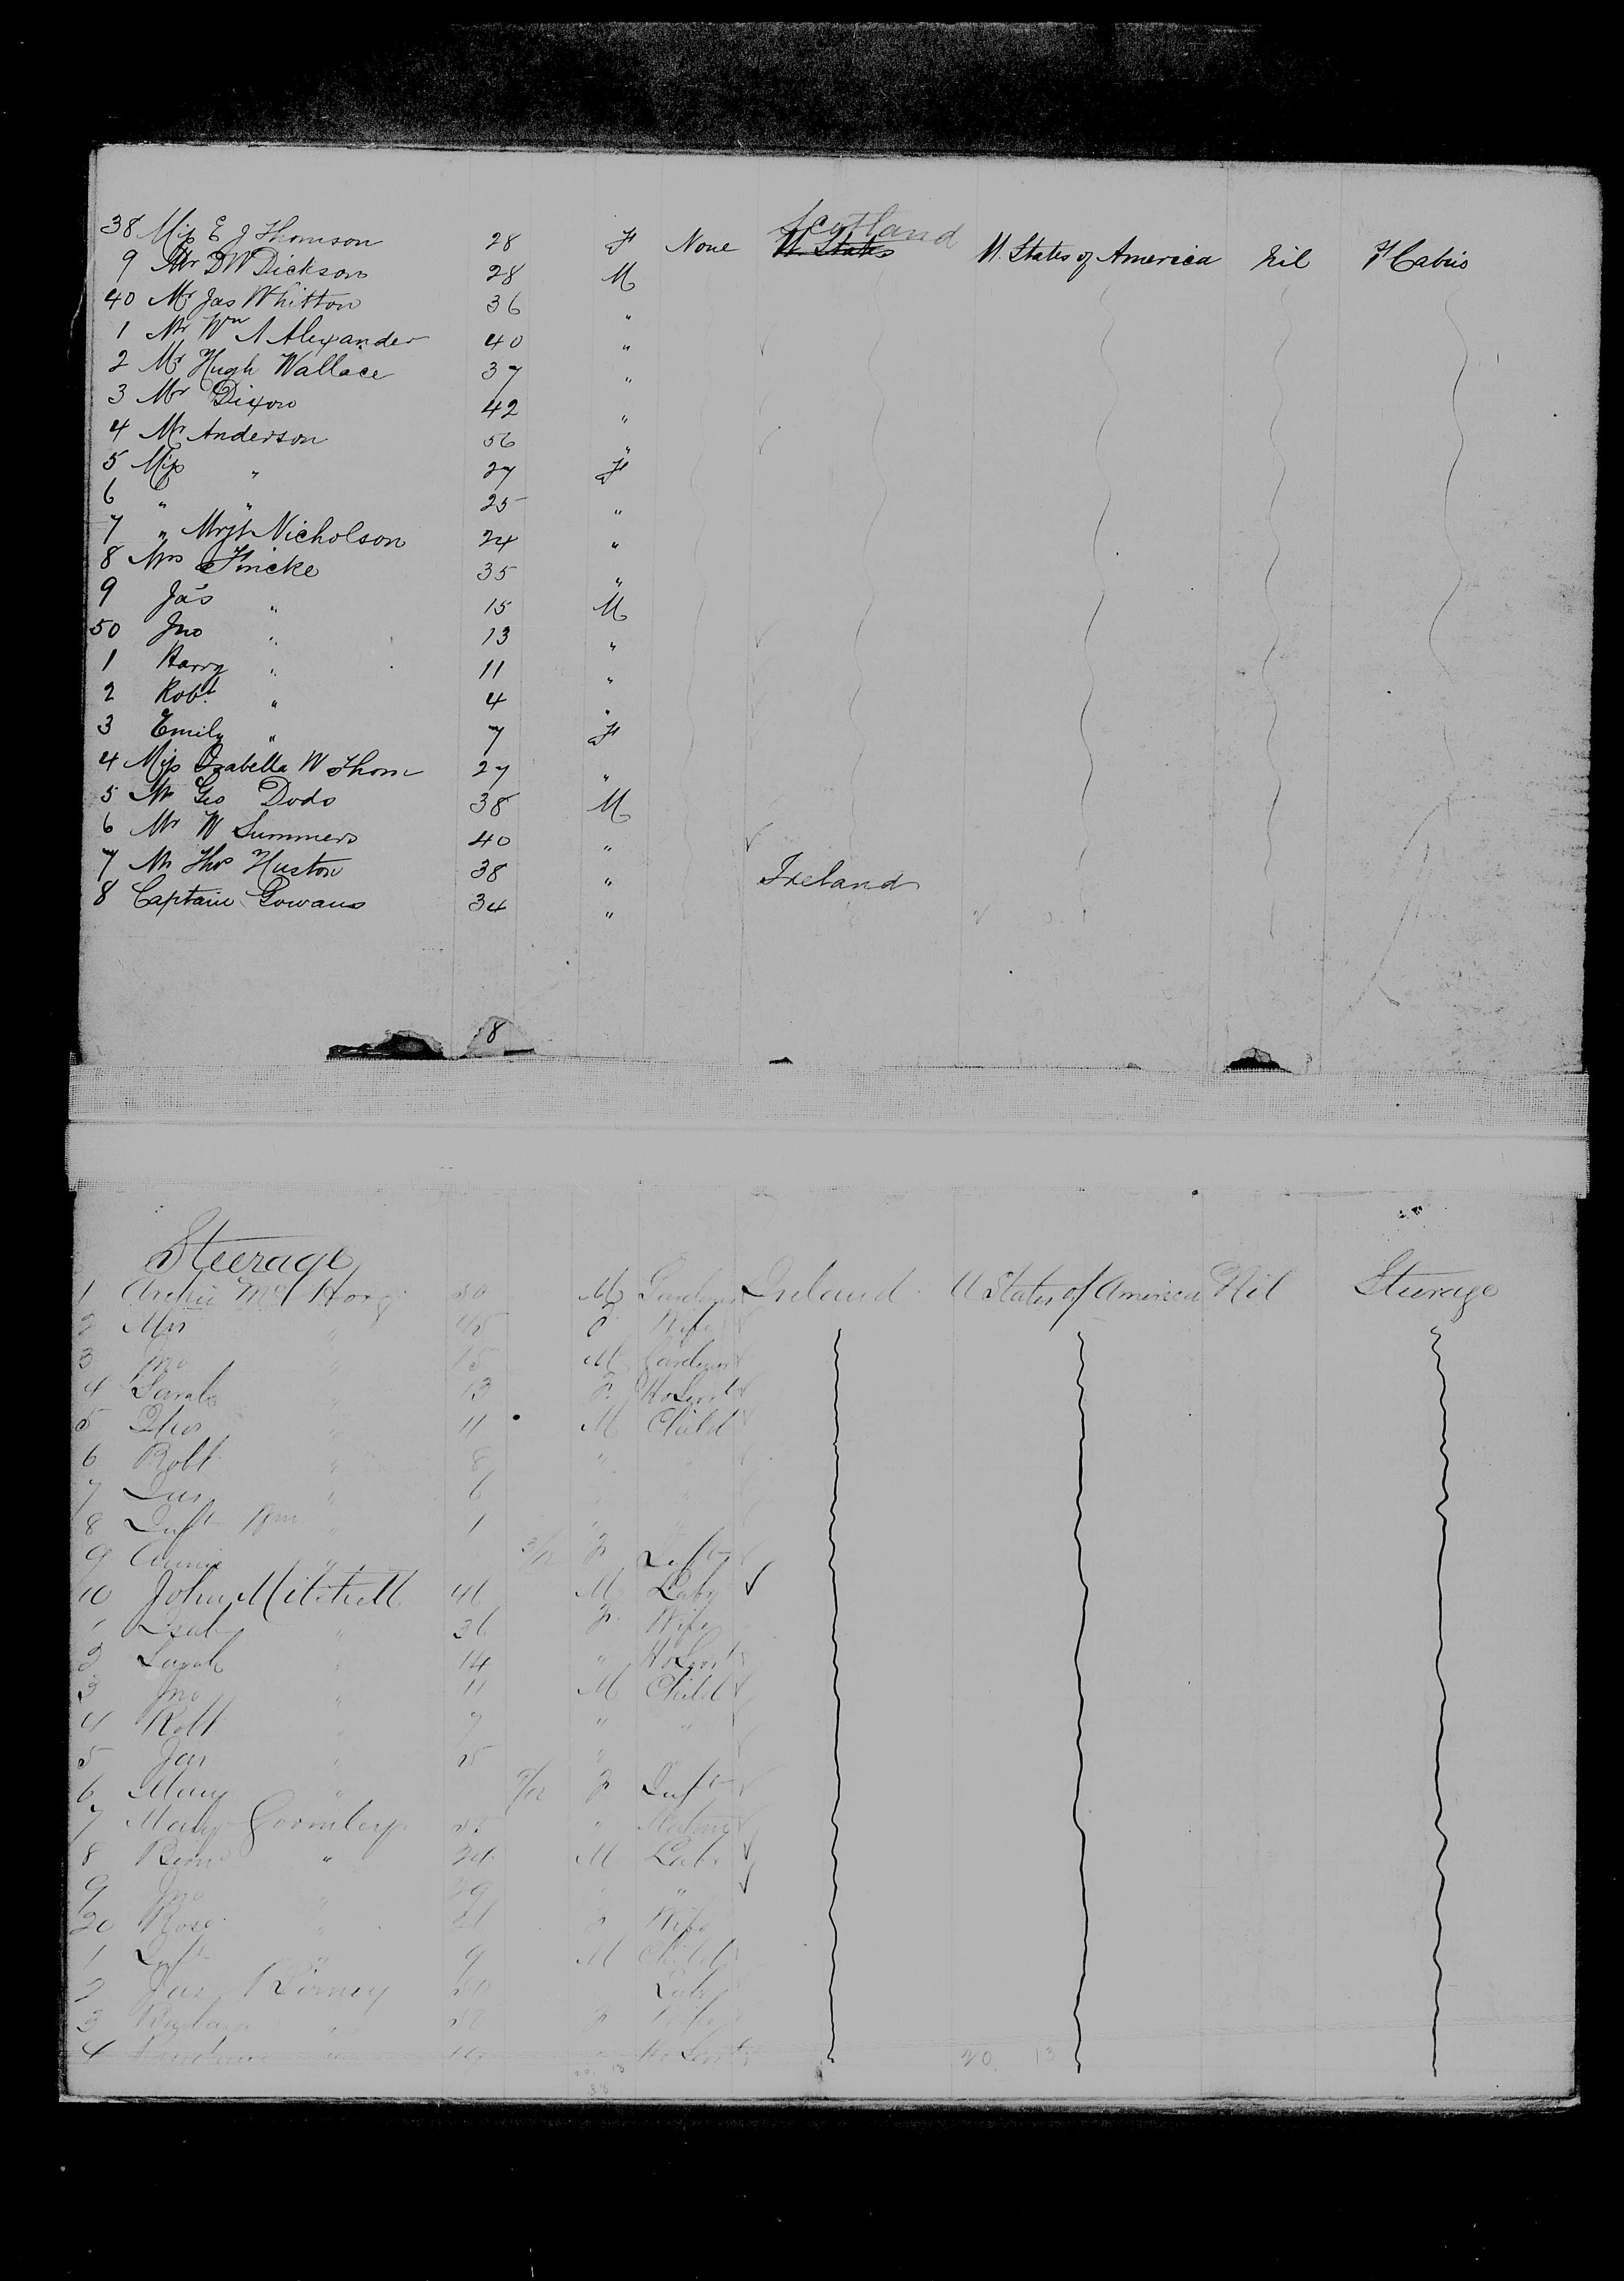 Scotland
38 Miss E J Thomson 28 F None U. States U. States of America Nil 1st Cabin
9 Mr D W Dickson 28 M
40 Mr Jas Whitton 36 "
1 Mr Wm A Alexander 40 "
2 Mr Hugh Wallace 37 "
3 Mr Dixon 42 "
4 Mr Anderson 56 "
5 Miss " 27 F
6 " " 25 "
7 " Mrgt Nicholson 24 "
8 Mrs Fincke 35 "
9 Jas " 15 M
50 Jno " 13 "
1 Harry " 11 "
2 Robt " 4 "
3 Emily " 7 F
4 Miss Isabella W Thom 27 "
5 Mr Geo Dods 38 M
6 Mr W Summers 40 "
7 Mr Thos Huston 38 " Ireland
8 Captain Gowans 34 "
8
Steerage
1 Archie 50 M Gardener Ireland U States of America Nil Steerage
2 Mrs " 45 F Wife
3 Jno " 15 M Gardener
4 Sarah " 13 F Ho Servt
5 Thos " 11 M Child
6 Robt " 8 "
7 Jas " 6 " "
8 Inft Wm " 1 " "
9 Annie " 3/12 F Inft
10 John Mitchell 41 M Labr
1 Isab " 36 F Wife
2 Sarah " 14 " Ho Servt
3 Jno " 11 M Child
4 Robt " 7 " "
5 Jas " 5 "
6 Mary " 9/12 F Inft
7 Mary Gormley 55 "
8 " 34 M Labr
9 Jno " 29 " "
20 Rose " F Wife
1 Inft " 9 M Child
2 Jas Birney Labr
3 " 50 F Wife
4 " Ho Servt
20 13